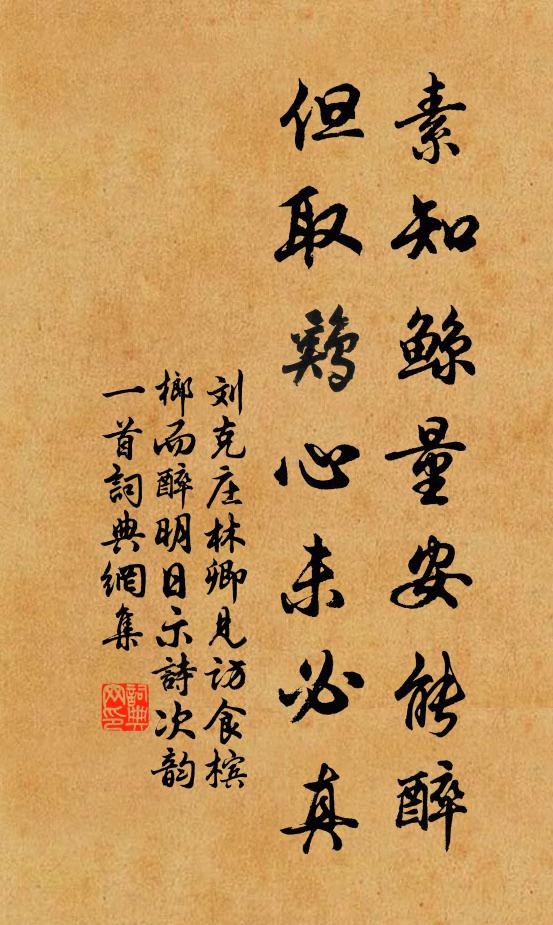 素知鲸量安能醉
但取鷄心未必真
刘克庄林卿見访食槟
榔而醉明日示詩次韵
一首詞典網集
詞典
网印